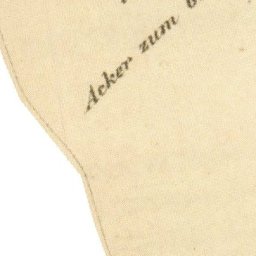 Acker zum